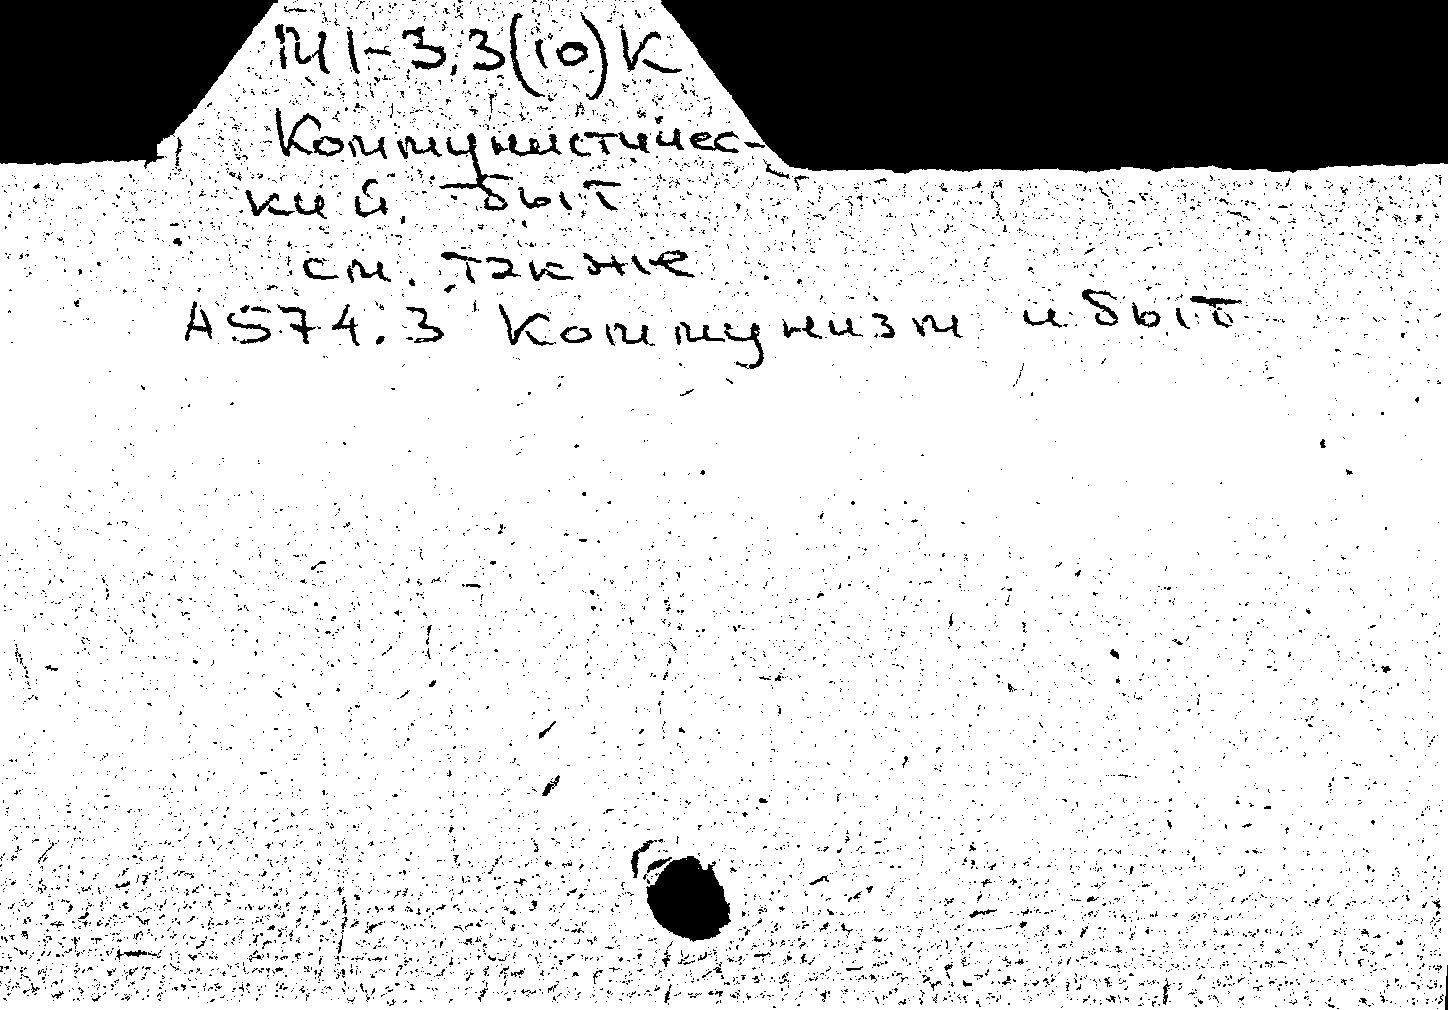 М1-3,3(10)К
Коммунистичес-
кий быт
см. также
А574.3 Коммунизм и быт